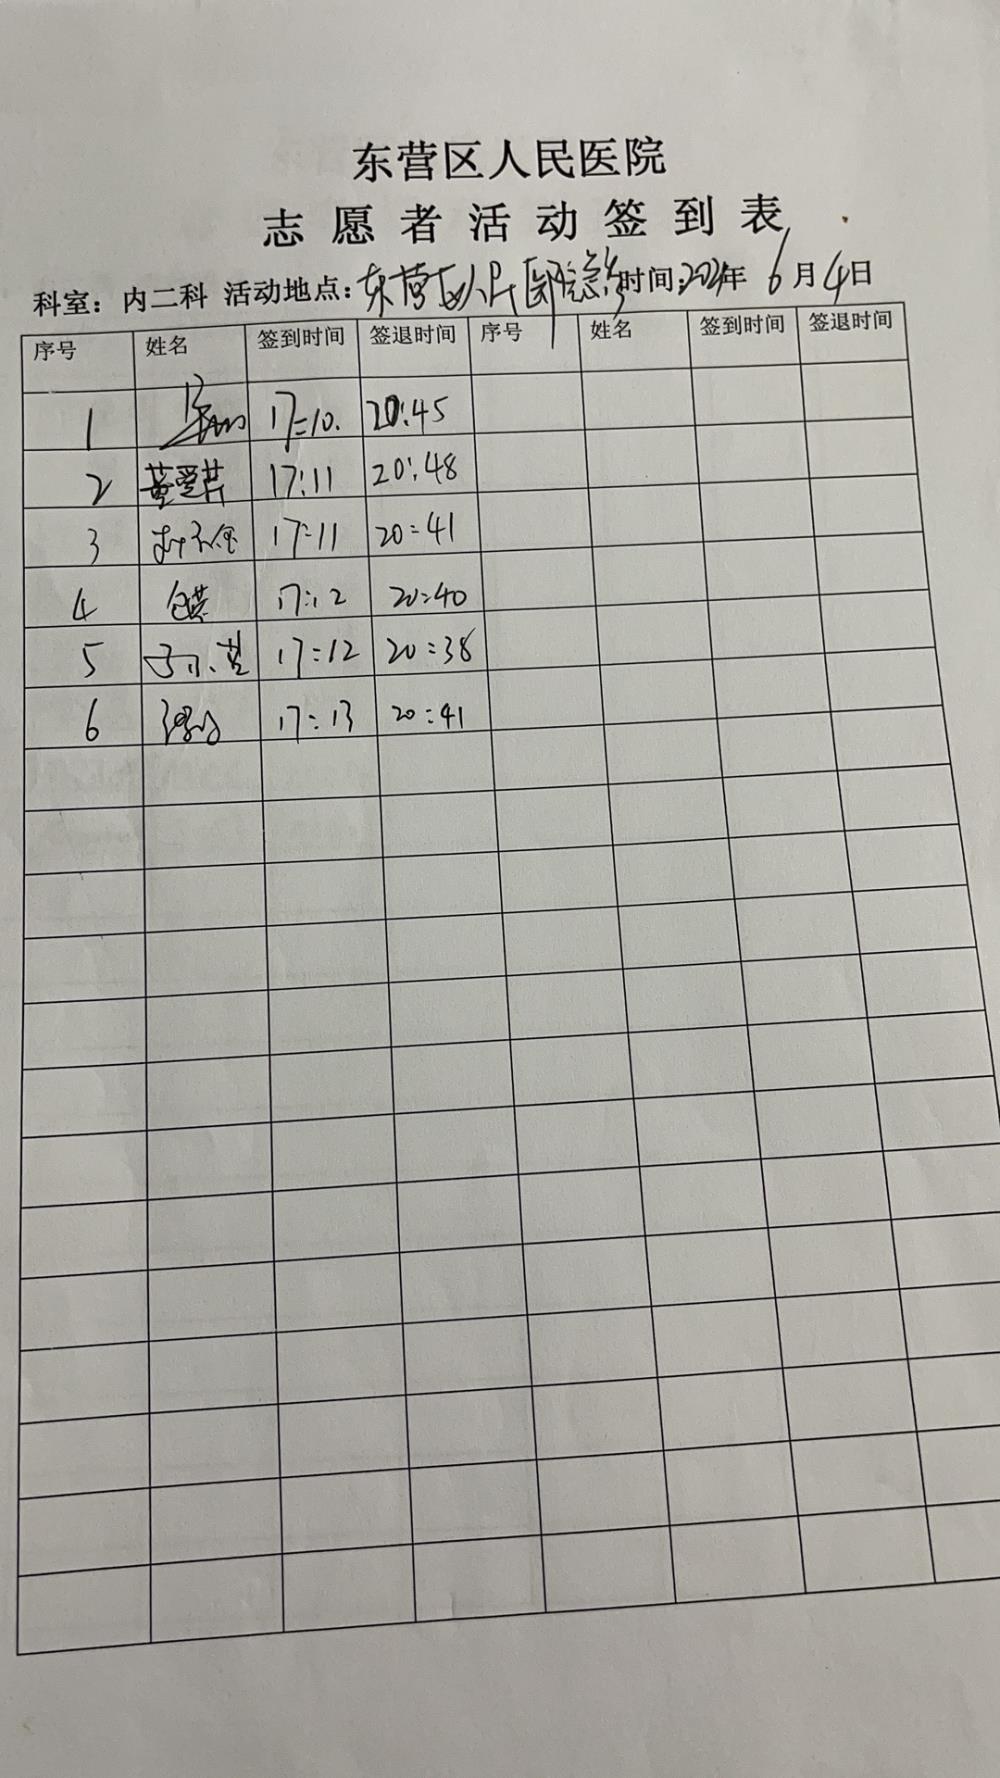 东营区人民医院
志愿者活动签到表
科室：内二科 活动地点：东营区人民医院 时间：2024年6月4日
序号 姓名 签到时间 签退时间 序号 姓名 签到时间 签退时间
1 17:10. 20:45
2 董爱芹 17:11 20:48
3 17:11 20:41
4 17:12 20:40
5 17:12 20:38
6 17:13 20:41